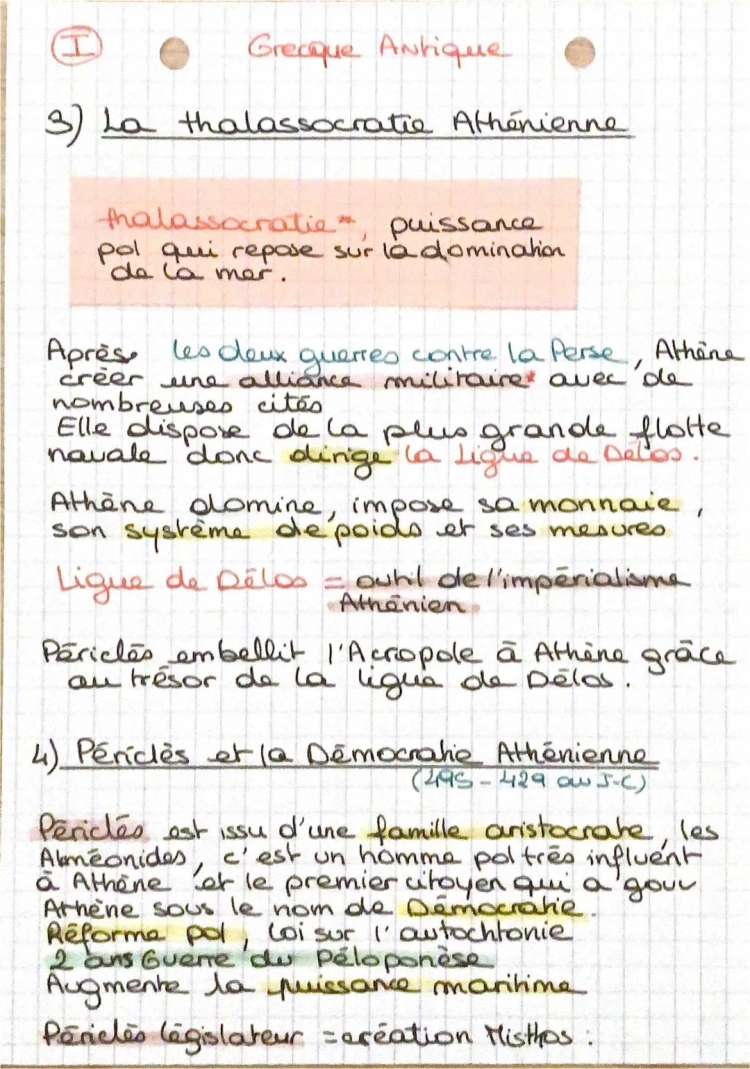 I Grecque Antique
3) La thalassocratie Athénienne
thalassocratie*, puissance
pol qui repose sur la domination
de la mer.
Après les deux guerres contre la Perse, Athène
créer une alliance militaire* avec de
nombreuses cités
Elle dispose de la plus grande flotte
navale donc dirige la Ligue de Délos.
Athène domine, impose sa monnaie,
son système de poids et ses mesures
Ligue de Délos = outil de l'impérialisme
Athénien.
Périclès embellit l'Acropole à Athène grâce
au trésor de la ligue de Délos.
4) Périclès et la Démocratie Athénienne
(495 - 429 av J-C)
Périclès est issu d'une famille aristocrate, les
Alméonides, c'est un homme pol très influent
à Athène et le premier citoyen qui a gouv
Athène sous le nom de Démocratie.
Réforme pol, loi sur l'autochtonie
2 ans Guerre du Péloponèse
Augmente la puissance maritime
Périclès législateur = création Misthos :